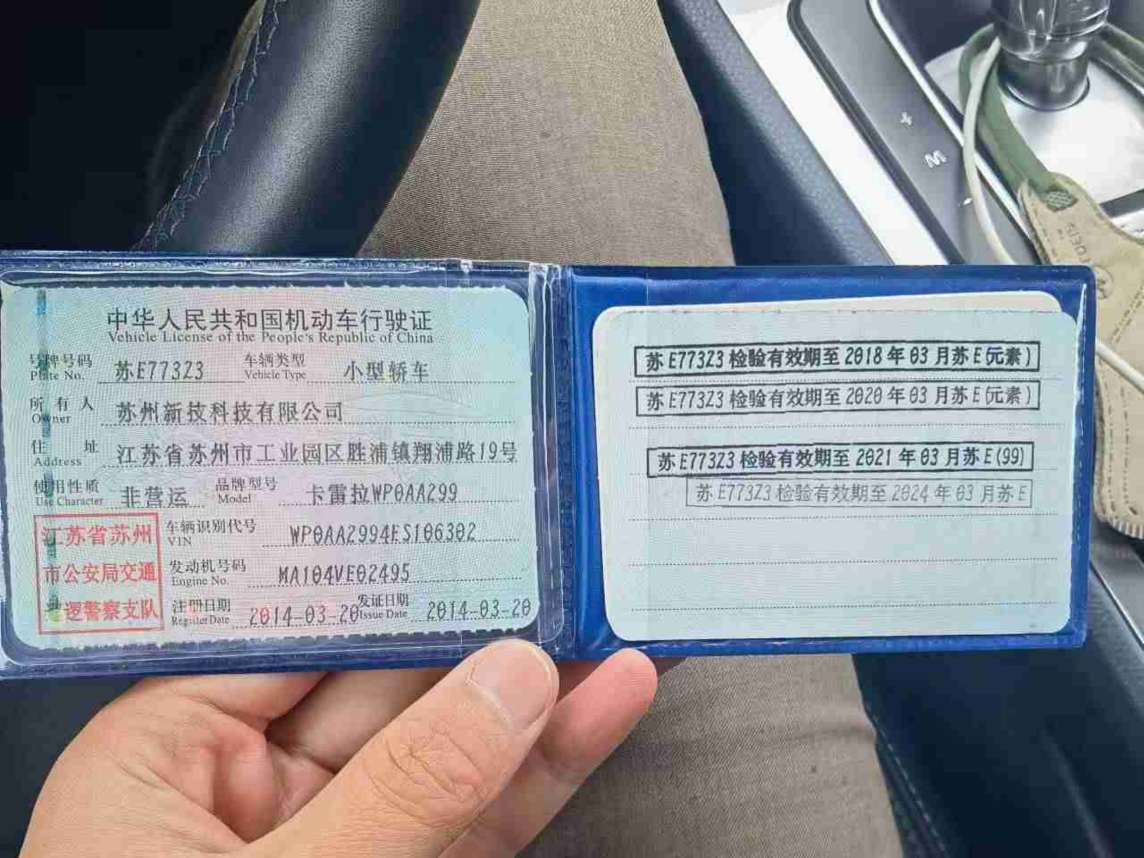 中华人民共和国机动车行驶证
Vehicle License of the People's Republic of China
号牌号码 苏E773Z3 车辆类型 小型轿车
Plate No. Vehicle Type
所有人 苏州新技科技有限公司
Owner
住址 江苏省苏州市工业园区胜浦镇翔浦路19号
Address
使用性质 非营运 品牌型号 卡雷拉WP0AA299
Use Character Model
江苏省苏州
市公安局交通
巡逻警察支队
车辆识别代号 WP0AA2994ES106302
VIN
发动机号码 MA104VE02495
Engine No.
注册日期 2014-03-20 发证日期 2014-03-20
Register Date Issue Date
苏E773Z3检验有效期至2018年03月苏E(元素)
苏E773Z3检验有效期至2020年03月苏E(元素)
苏E773Z3检验有效期至2021年03月苏E(99)
苏E773Z3检验有效期至2024年03月苏E
+
M
-